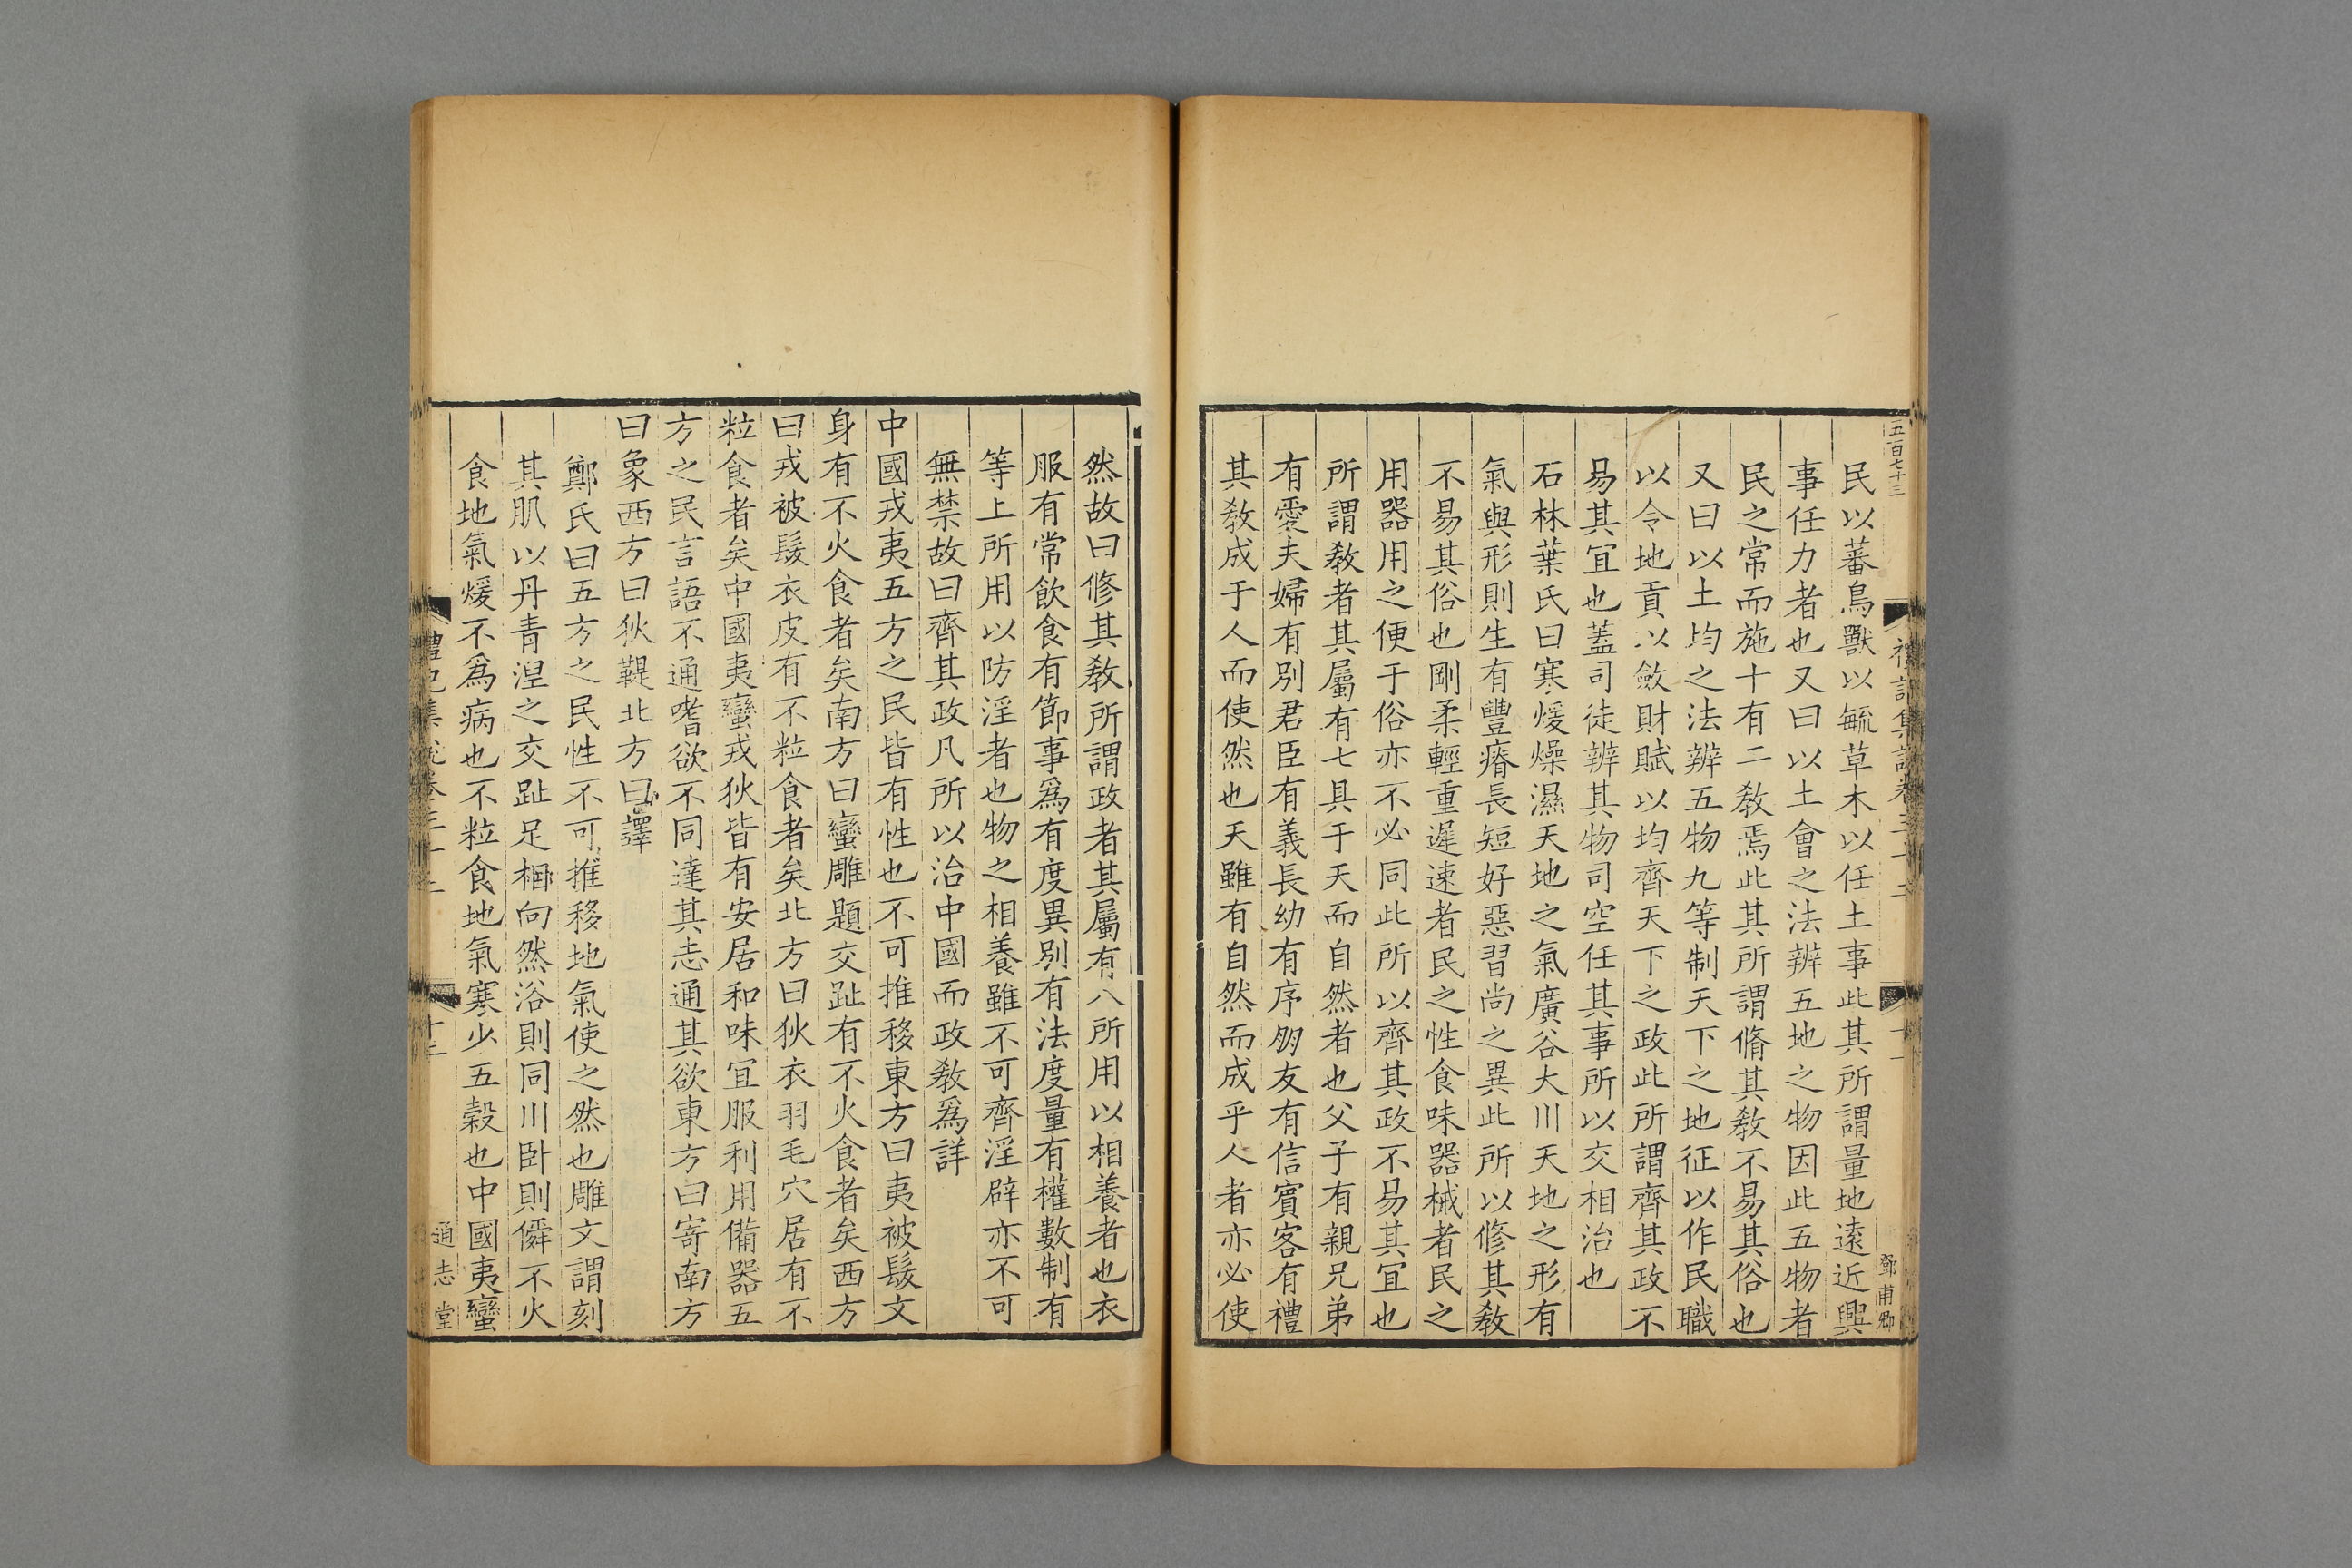 五百七十三
民以蕃鳥獸以毓草木以任土事此其所謂量地遠近興
事任力者也又曰以土會之法辨五地之物因此五物者
民之常而施十有二敎焉此其所謂脩其敎不易其俗也
又曰以土均之法辨五物九等制天下之地征以作民職
以令地貢以斂財賦以均齊天下之政此所謂齊其政不
易其宜也蓋司徒辨其物司空任其事所以交相治也
石林葉氏曰寒煖燥濕天地之氣廣谷大川天地之形有
氣與形則生有豐瘠長短好惡習尚之異此所以修其敎
不易其俗也剛柔輕重遲速者民之性食味器械者民之
用器用之便于俗亦不必同此所以齊其政不易其宜也
所謂敎者其屬有七具于天而自然者也父子有親兄弟
有愛夫婦有別君臣有義長幼有序朋友有信賓客有禮
其敎成于人而使然也天雖有自然而成乎人者亦必使
鄧甫卿
然故曰修其敎所謂政者其屬有八所用以相養者也衣
服有常飲食有節事爲有度異別有法度量有權數制有
等上所用以防淫者也物之相養雖不可齊淫辟亦不可
無禁故曰齊其政凡所以治中國而政敎爲詳
中國戎夷五方之民皆有性也不可推移東方曰夷被髮文
身有不火食者矣南方曰蠻雕題交趾有不火食者矣西方
曰戎被髮衣皮有不粒食者矣北方曰狄衣羽毛穴居有不
粒食者矣中國夷蠻戎狄皆有安居和味宜服利用備器五
方之民言語不通嗜欲不同達其志通其欲東方曰寄南方
曰象西方曰狄鞮北方曰譯
鄭氏曰五方之民性不可推移地氣使之然也雕文謂刻
其肌以丹靑涅之交趾足相向然浴則同川卧則僢不火
食地氣煖不爲病也不粒食地氣寒少五穀也中國夷蠻
禮記集說卷三十三
十二
通志堂